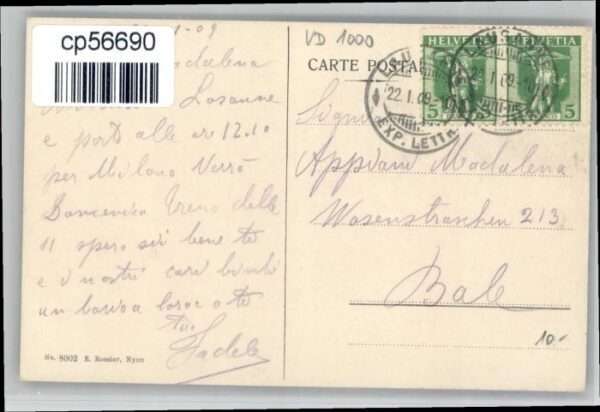 cp56690
-09
VD 1000
Madalena
Losanne
e parto alle ore 12.10
per Milano Verrò
Domenica treno delle
11 spero sii bene te
e i nostri cari bimbi
un bacio a loro a te
tuo
Fadele
No. 8002 E. Rossier, Nyon
CARTE POSTA
HELVETIA
HELVETIA
5
5
5
22.I.09
EXP. LETTR
Signora
Appiani Madalena
Wasenstrasschen 213
Bale
10.-